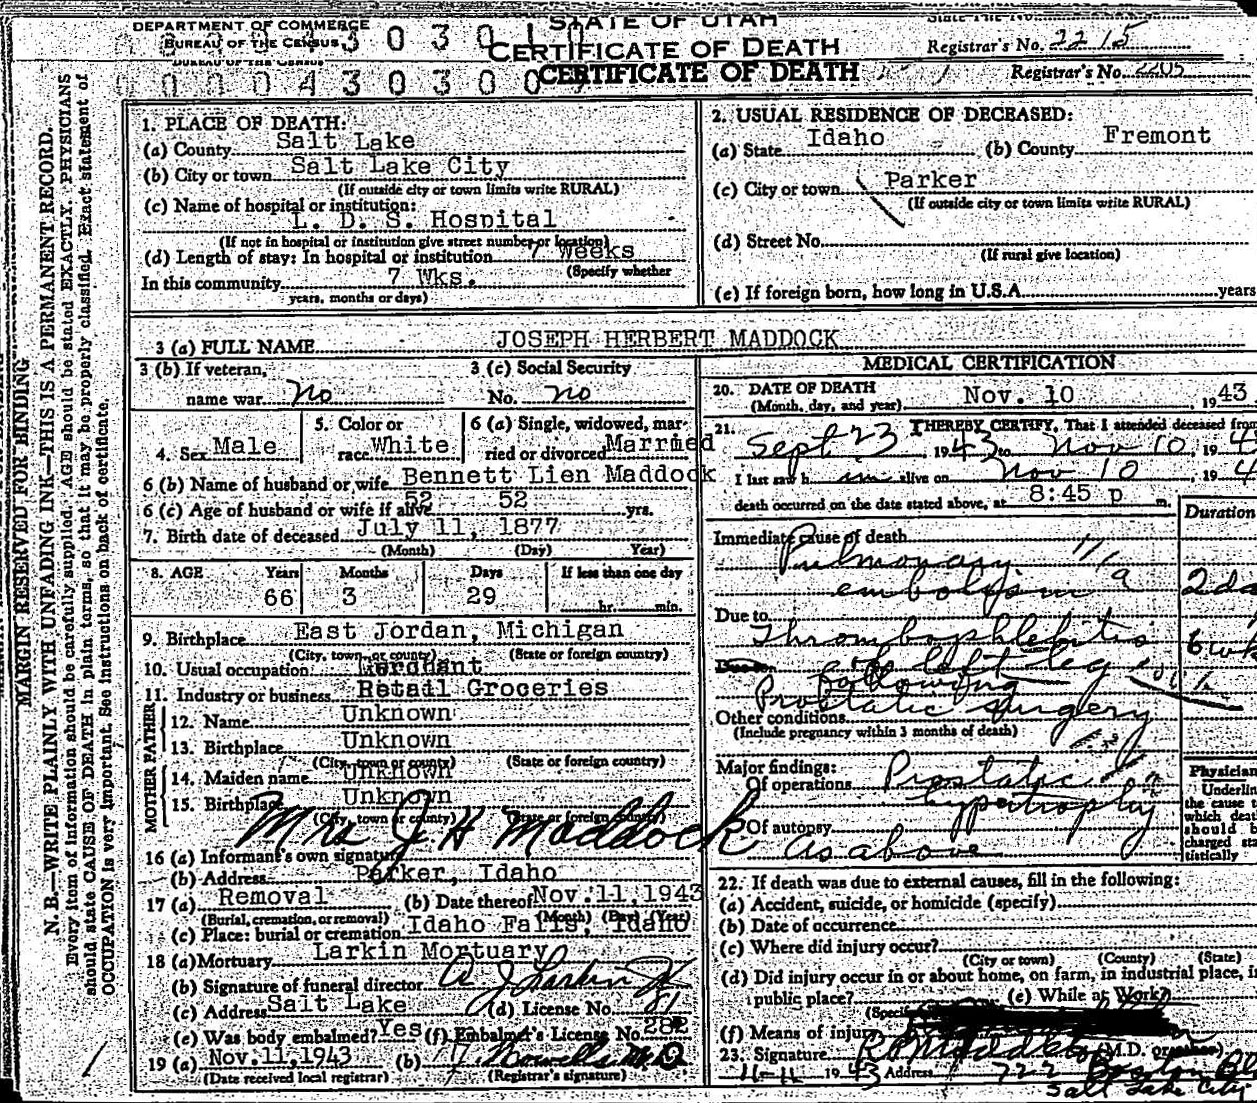 DEPARTMENT OF COMMERCE
BUREAU OF THE CENSUS
STATE OF UTAH
CERTIFICATE OF DEATH
CERTIFICATE OF DEATH
Registrar's No. 2215
Registrar's No. 2205
MARGIN RESERVED FOR BINDING
N. B.—WRITE PLAINLY WITH UNFADING INK—THIS IS A PERMANENT RECORD.
Every item of information should be carefully supplied. AGE should be stated EXACTLY. PHYSICIANS
should state CAUSE OF DEATH in plain terms, so that it may be properly classified. Exact statement of
OCCUPATION is very important. See instructions on back of certificate.
1. PLACE OF DEATH:
(a) County Salt Lake
(b) City or town Salt Lake City
(If outside city or town limits write RURAL)
(c) Name of hospital or institution:
L. D. S. Hospital
(If not in hospital or institution give street number or location)
(d) Length of stay: In hospital or institution 7 Weeks
(Specify whether
In this community 7 Wks.
years, months or days)
2. USUAL RESIDENCE OF DECEASED:
(a) State Idaho (b) County Fremont
(c) City or town Parker
(If outside city or town limits write RURAL)
(d) Street No.
(If rural give location)
(e) If foreign born, how long in U.S.A. years
3 (a) FULL NAME JOSEPH HERBERT MADDOCK
3 (b) If veteran,
name war no
3 (c) Social Security
No. no
4. Sex Male
5. Color or
race White
6 (a) Single, widowed, mar-
ried or divorced Married
6 (b) Name of husband or wife Bennett Lien Maddock
6 (c) Age of husband or wife if alive 52 52 yrs.
7. Birth date of deceased July 11, 1877
(Month) (Day) Year)
8. AGE Years Months Days If less than one day
66 3 29 hr. min.
9. Birthplace East Jordan, Michigan
(City, town or county) (State or foreign country)
10. Usual occupation Merchant
11. Industry or business Retail Groceries
FATHER
12. Name Unknown
13. Birthplace Unknown
(City, town or county) (State or foreign country)
MOTHER
14. Maiden name Unknown
15. Birthplace Unknown
(City, town or county) (State or foreign country)
Mrs J H Maddock
16 (a) Informant's own signature
(b) Address Parker, Idaho
17 (a) Removal (b) Date thereof Nov.11,1943
(Burial, cremation, or removal) (Month) (Day) (Year)
(c) Place: burial or cremation Idaho Falls, Idaho
18 (a) Mortuary Larkin Mortuary
(b) Signature of funeral director A J Larkin
(c) Address Salt Lake (d) License No. 81
(e) Was body embalmed? Yes (f) Embalmer's License No. 282
19 (a) Nov.11,1943 (b) M.D.
(Date received local registrar) (Registrar's signature)
MEDICAL CERTIFICATION
20. DATE OF DEATH
(Month, day, and year) Nov. 10, 1943
21. I HEREBY CERTIFY, That I attended deceased from
Sept 23, 1943 to Nov 10, 19 4
I last saw him alive on Nov 10, 19 4
death occurred on the date stated above, at 8:45 p m.
Duration
Immediate cause of death
Pulmonary 11/9
embolysm 2 da
Due to
Thrombophlebitis 6 wk
Due to of left leg
following
Prostatic surgery
Other conditions
(Include pregnancy within 3 months of death)
Major findings:
Of operations Prostatic
hypertrophy
Of autopsy
as above
Physician
Underlin
the cause
which dea
should
charged sta
tistically
22. If death was due to external causes, fill in the following:
(a) Accident, suicide, or homicide (specify)
(b) Date of occurrence
(c) Where did injury occur?
(City or town) (County) (State)
(d) Did injury occur in or about home, on farm, in industrial place, i
public place? (e) While at Work?
(f) Means of injury
23. Signature (M.D. or
11-11 1943 Address 722 Boston
Salt Lake City